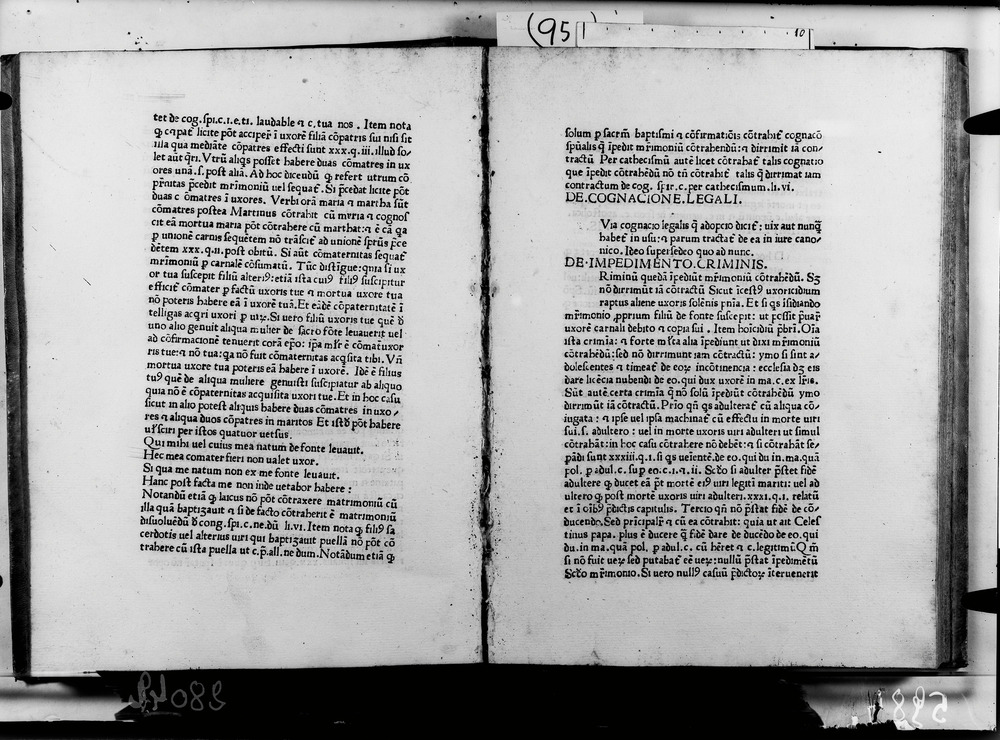 (95)
10
tet de cog. spi.c.i.e.ti. laudable ⁊ c. tua nos . Item nota
ꝙ c⁊pat̃ licite põt acciper̃ ĩ uxorẽ filiã cõpatris sui nisi sit
illa qua mediãte cõpatres effecti sunt xxx.q.iii.illud so/
let aũt q̃ri. Vtrũ aliq̃s posset habere duas cõmatres in ux
ores unã.s.post aliã. Ad hoc dicendũ ꝙ refert utrum cõ
pr̃nitas p̃cedit mr̃imoniũ uel sequat̃. Si p̃cedat licite põt
duas c õmatres ĩ uxores. Verbi orã maria ⁊ martha sũt
cõmatres postea Martinus cõtrahit cũ mvria ⁊ cognos
cit eã mortua maria põt cõtrahere cũ marthat:⁊ ẽ cã q̃a
p unionẽ carnis sequẽtem nõ trãscit̃ ad unionẽ sp̃rũs p̃ce
dẽtem xxx.q.ii.post obitũ. Si aũt cõmaternitas sequat̃
mr̃imoniũ p carnalẽ cõsumatũ. Tũc distĩgue:quia si ux
or tua suscepit filiũ alteriꝰ:etiã ista cuiꝰ filiꝰ suscipitur
efficit̃ cõmater p factũ uxoris tue ⁊ mortua uxore tua
nõ poteris habere eã ĩ uxorẽ tuã.Et eãdẽ cõpaternitatẽ ĩ
telligas acq̃ri uxori p uiꝝ.Si uero filiũ uxoris tue quẽ d̃
uno alio genuit aliqua mulier de sacro fõte leuauerit uel
ad cõfirmacionẽ tenuerit corã ep̃o: ip̃a mr̃r̃ ẽ cõmat̃uxor
ris tue:⁊ nõ tua:q̃a nõ fuit cõmaternitas acq̃sita tibi. Vñ
mortua uxore tua poteris eã habere ĩ uxorẽ. Idẽ ẽ filius
tuꝰ quẽ de aliqua muliere genuisti suscipiatur ab aliquo
quia nõ ẽ cõpaternitas acquisita uxori tue. Et in hoc casu
sicut in alio potest aliquis habere duas cõmatres in uxo/
res ⁊ aliqua duos cõpatres in maritos Et istd̃ põt habere
ur̃sciri per istos quatuor uersus.
Qui mihi uel cuius mea natum de fonte leuauit.
Hec mea comater fieri non ualet uxor.
Si qua me natum non ex me fonte leuauit.
Hanc post facta me non inde uetabor habere :
Notandũ etiã ꝙ laicus nõ põt cõtraxere matrimoniũ cũ
illa quã baptizauit ⁊ si de facto cõtraherit ẽ matrimoniũ
disuoluẽdũ d̃ cong.spi.c.ne.dũ li.vi. Item nota ꝙ filiꝰ sa
cerdotis uel alterius uiri qui baptizauit puellã nõ põt cõ
trahere cũ ista puella ut c.p̃.all.ne dum. Notãdum etiã ꝙ
solum p sacrm̃ baptismi ⁊ cõfirmatiõis cõtrahit̃ cognacõ
sp̃ualis q̃ ĩpedit mr̃imoniũ cõtrahendũ:⁊ dirrimit iã con/
tractũ. Per cathecismũ autẽ licet cõtrahat̃ talis cognatio
que ĩpedit cõtrahẽdũ nõ tñ cõtrahit̃ talis q̃ dirrimat iam
contractum de cog. spir.c.per cathecismum.li.vi.
DE.COGNACIONE.LEGALI.
Via cognacio legalis q̃ adopcio dicit̃: uix aut nunq̃
habet̃ in usu:⁊ parum tractat̃ de ea in iure cano/
nico. Ideo supersedeo quo ad nunc.
DE.IMPEDIMENTO.CRIMINIS.
Riminũ quedã ĩpediũt mr̃imoniũ cõtrahẽdũ. Sꝫ
nõ dirrimũt iã cõtractũ Sicut ĩcestꝰ uxoricidium
raptus aliene uxoris solẽnis pñia. Et si qs ĩsidiando
mr̃imonio ꝓprium filiũ de fonte suscepit: ut possit p̃uar̃
uxorẽ carnali debito ⁊ copia sui . Item hoĩcidiũ p̃bri.Oĩa
ista crimĩa: ⁊ forte ml̃ta alia ĩpediunt ut dixi mr̃imoniũ
cõtrahẽdũ:sed nõ dirrimunt iam cõtractũ: ymo si sint a/
dolescentes ⁊ timeat̃ de eoꝝ incõtinencia : ecclesia dꝫ eis
dare licẽcia nubendi de eo.qui dux uxorẽ in ma.c.ex lr̃is.
Sũt autẽ.certa crimĩa q̃ nõ solũ ĩpediũt cõtrahẽdũ ymo
dirrimũt iã cõtractũ. Prĩo qñ qs adulterat̃ cũ aliqua cõ/
iugata : ⁊ ipse uel ipsa machinat̃ cũ effectu in morte uiri
sui.s. adultero : uel in morte uxoris uiri adulteri ut simul
cõtrahãt: in hoc casu cõtrahere nõ debẽt:⁊ si cõtrahãt se/
pãdi sunt xxxiii.q.i.si qs ueĩentẽ.de eo.qui du in.ma.quã
pol. p adul.c. sup eo.c.i.⁊.ii. Scd̃o si adulter p̃stet fidẽ
adultere ꝙ ducet eã p̃t mortẽ eiꝰ uiri legitĩ mariti: uel ad
ultero ꝙ post mortẽ uxoris uiri adulteri.xxxi.q.i. relatũ
et ĩ oĩbꝰ p̃dictis capitulis. Tercio qñ nõ p̃stat fidẽ de cõ/
ducendo.Sed prĩcipalr̃ ⁊ cũ ea cõtrahit: quia ut ait Celes
tinus papa. plus ẽ ducere q̃ fidẽ dare de ducẽdo de eo.qui
du.in ma.quã pol, p adul.c. cũ hẽret ⁊ c.legitimũ.Q m̃
si nõ fuit ueꝝ sed putabat̃ eẽ ueꝝ:nullũ p̃stat ĩpedimẽtũ
Scd̃o mr̃imonio.Si uero nullꝰ casuũ p̃dictoꝝ ĩteruenerit
28049
5984